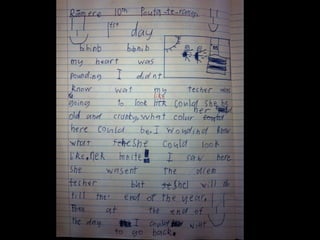 Rāmere 10th Poutū-te-rangi
1est day
bbnb bbnnb
my heart was
pounding I didnt
know wat my techer was
going to look like could she be
old and crabby, what color her
here could be. I wondrd know
what she could look
like.
I saw here
she wasent the drem
techer but she will do
till the end of the year.
Then at the end of
the day I could wait
to go back.